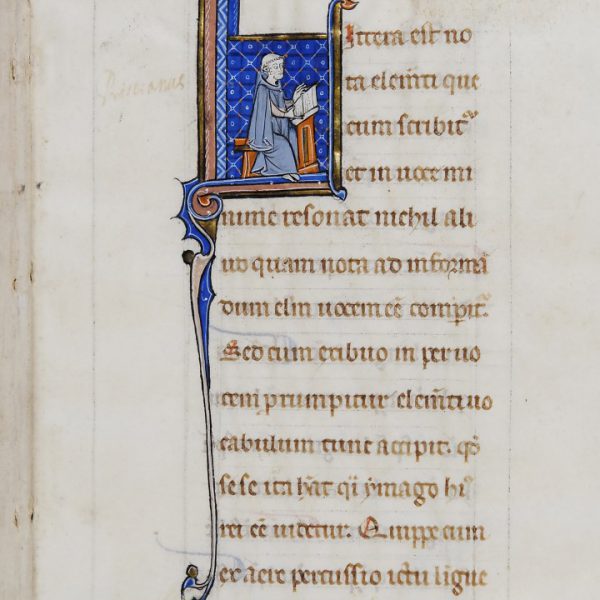 Priscianus
Littera est no
ta elem̃ti que
cum scribit᷑
et in uoce mi
nime resonat nichil ali
ud quam nota ad informā
dum elm̃ uocem eē comp̱it᷑.
Sed cum tribuo in per uo
cem prumpitur elem̃ti uo
cabulum tunc accipit. qđ
se se ita ħat qͥ ymago hͥ
rei eē uidetur. Quippe cum
ex aere percussio ictu ligue